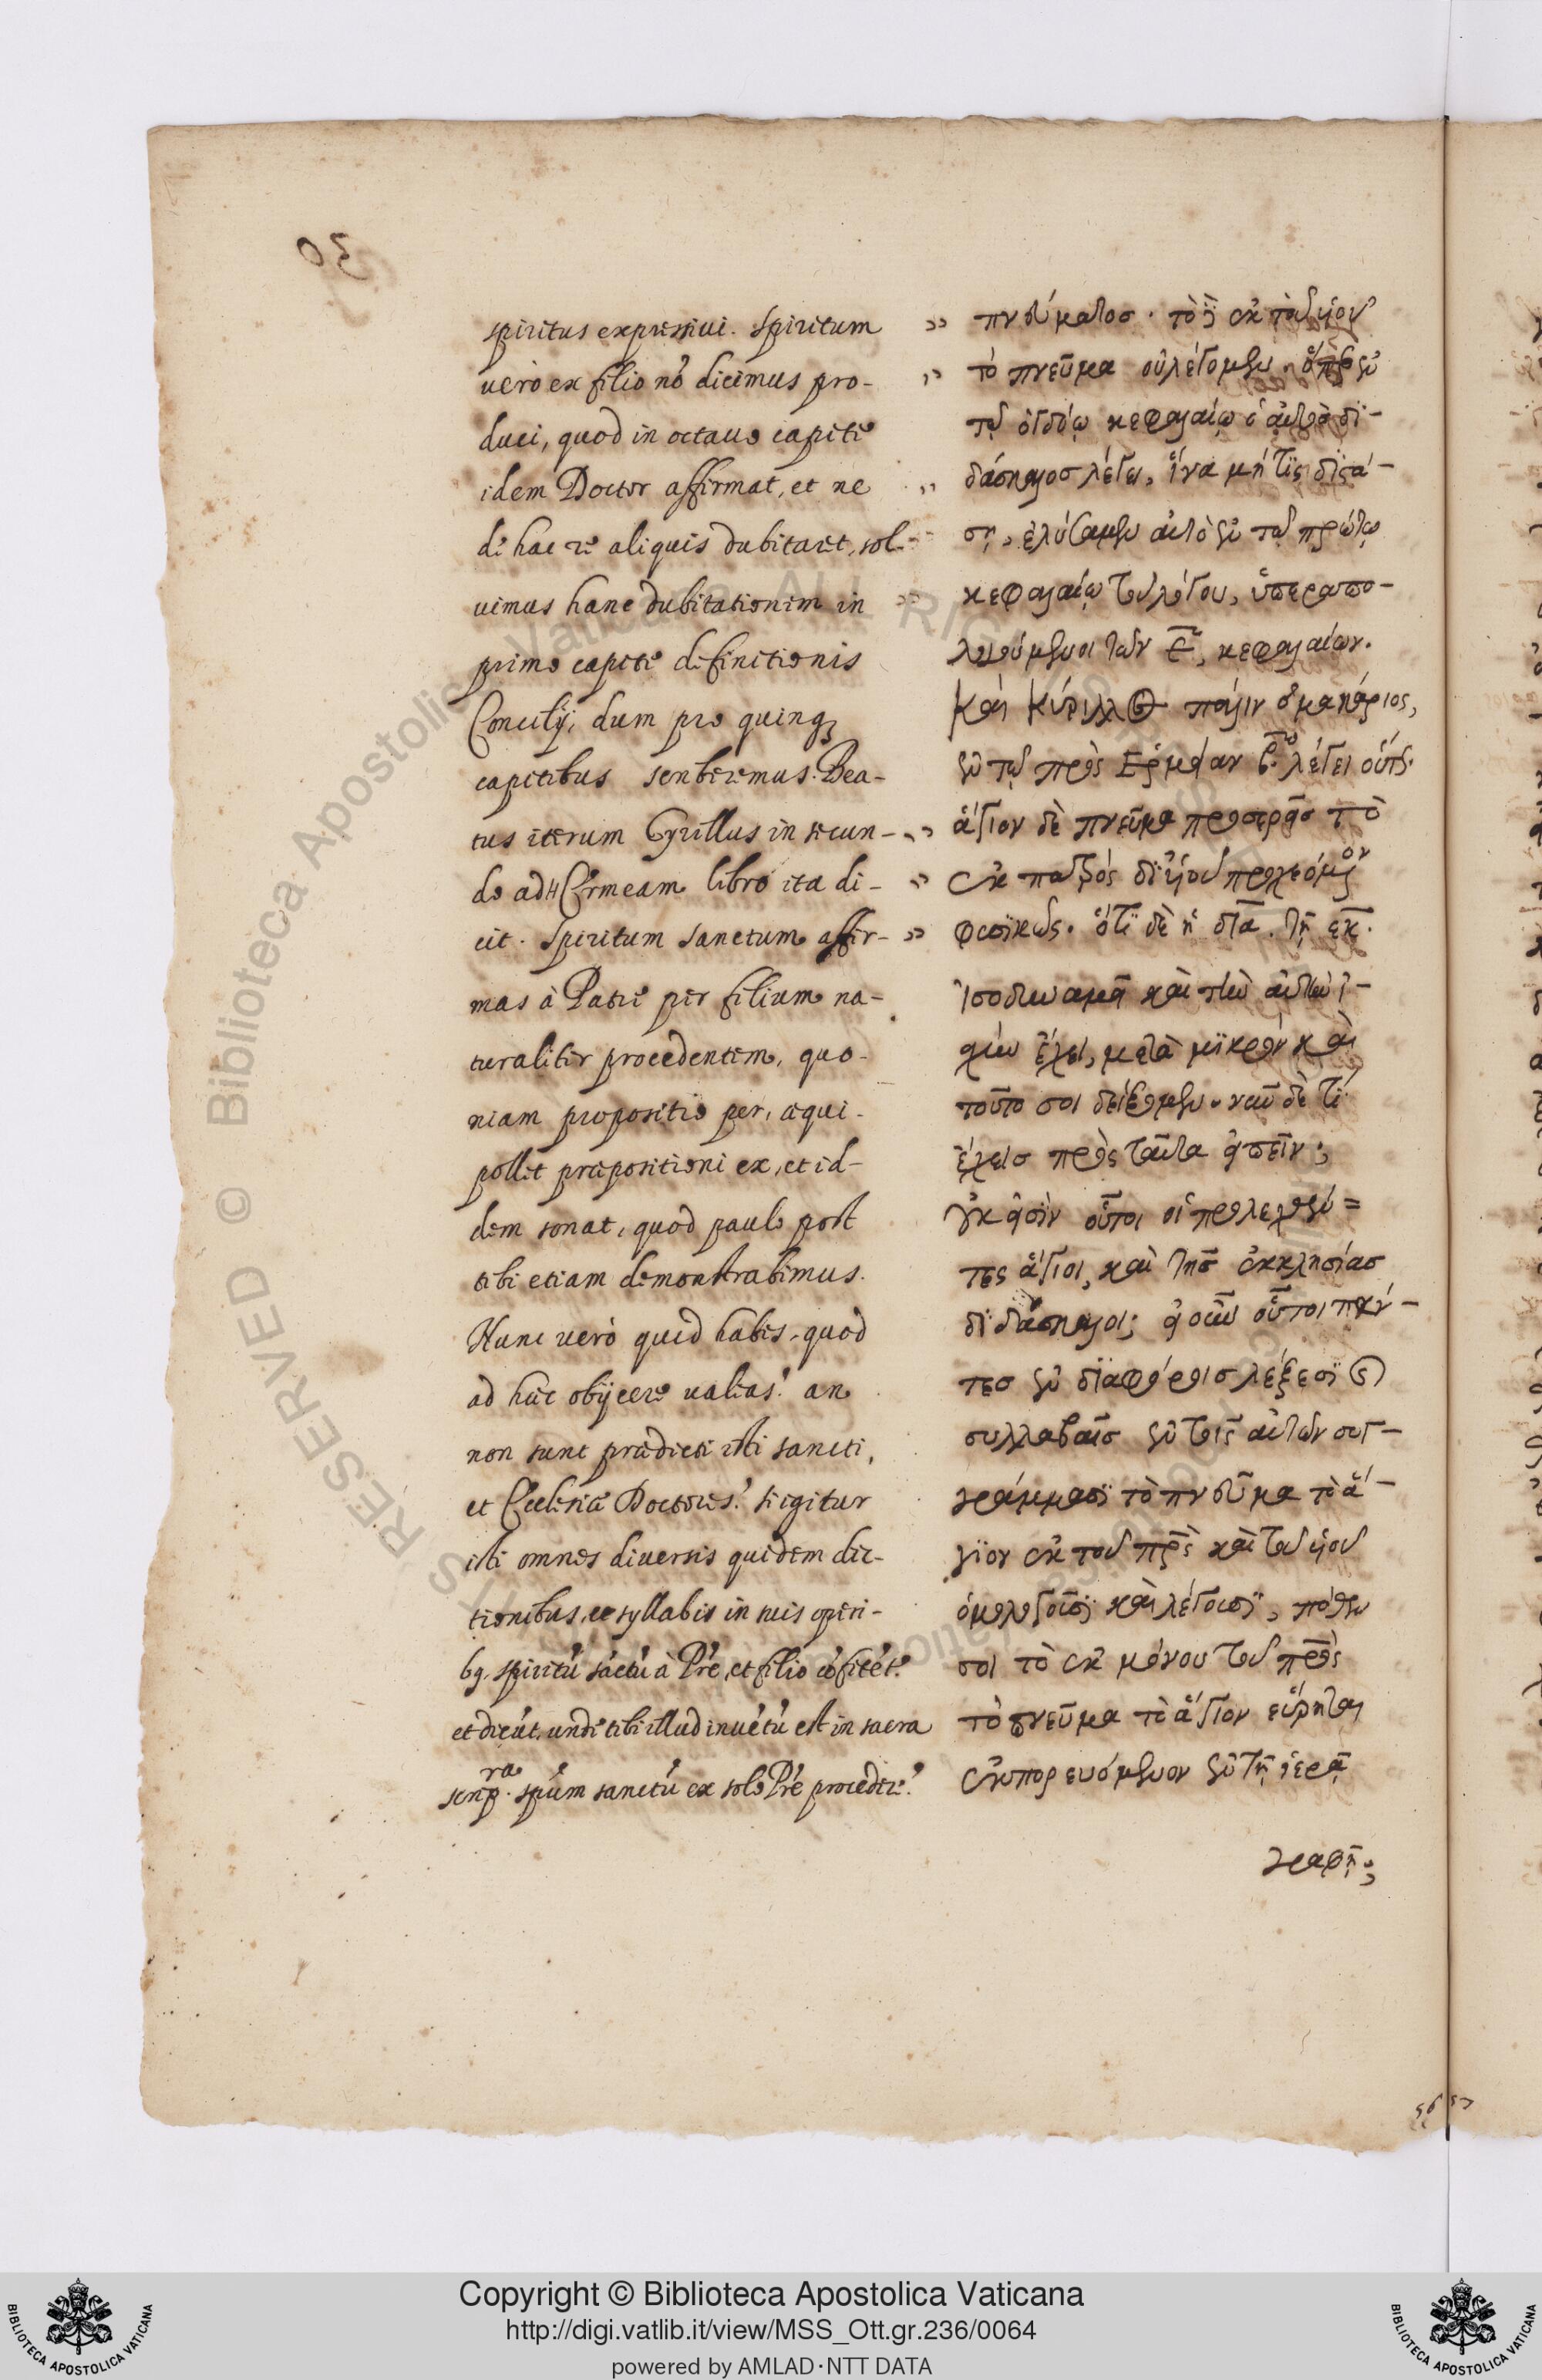 spiritus expressiui. Spiritum
uero ex filio nō dicimus pro-
duci, quod in octauo capite
idem Doctor affirmat, et ne
de hac re aliquis dubitaret, sol-
uimus hanc dubitationem in
primo capite definitionis
Concilij, dum pro quinqꝫ
capitibus scriberemus. Bea-
tus iterum Cyrillus in secun-
do ad Hermeam libro ita di-
cit. Spiritum sanctum affir-
mas à Patre per filium na-
turaliter procedentem, quo-
niam propositio per, aequi-
pollet praepositioni ex, et id-
dem sonat, quod paulo post
tibi etiam demonstrabimus.
Nunc uerò quid habes, quod
ad hūc obijcere ualeas? an
non sunt praedicti isti sancti,
et Ecclesiae Doctores? si igitur
isti omnes diuersis quidem dic-
tionibus, et syllabis in suis operi-
bꝫ. spiritū sāctū à Pre, et filio cōfitēt.
et dicūt, unde tibi illud inuētū est in sacra
scrip.ra spūm sanctū ex solo Pre procedere?
πνεύματος. τὸ δὲ ἐκ τοῦ υἱοῦ
τὸ πνεῦμα οὐ λέγομεν. ὅπερ ἐν
τῷ ὀγδόῳ κεφαλαίῳ ὁ αὐτὸς δι-
δάσκαλος λέγει, ἵνα μή τις διστά-
ση, ἐλύσαμεν αὐτὸ ἐν τῷ πρώτῳ
κεφαλαίῳ τοῦ λόγου, ὑπεραπο-
λογούμενοι τῶν ε̄, κεφαλαίων.
Καὶ Κύριλλος πάλιν ὁ μακάριος,
ἐν τῷ πρὸς Ερμείαν β.ω λέγει οὕτως.
ἅγιον δὲ πνεῦμα προσερᾶσ τὸ
ἐκ πατρὸς δι' υἱοῦ προχεόμενον
φυσϊκῶς. ὅτϊ δὲ ἡ δϊα. τῇ εκ.
ἰσοδυναμεῖ καὶ τὴν αὐτὴν ἰ-
σχὺν ἔχει, μετὰ μϊκρὸν καὶ
τοῦτο σοι δείξομεν. νῦν δὲ τί
ἔχεισ πρὸς ταῦτα εἰπεῖν;
οὐκ εἰσὶν οὗτοι οἱ προλεχθέν=
τες ἅγιοι, καὶ τῆσ ἐκκλησίασ
δϊδάσκαλοι; εἰ οὖν οὗτοι πάν-
τεσ ἐν δϊαφόροισ λέξεσϊ καὶ
συλλαβαῖσ ἐν τοῖς αὐτῶν συγ-
γράμμασϊ τὸ πνεῦμα τὸ ἅ-
γϊον ἐκ τοῦ πρ̄ς καὶ τοῦ υἱοῦ
ὁμολογοῦσϊ καὶ λέγουσϊ, πόθεν
σοι τὸ ἐκ μόνου τοῦ πρ̄ς
τὸ πνεῦμα τὸ ἅγϊον εὕρηται
ἐκπορευόμενον ἐν τῇ ἱερᾷ
γραφῇ;
Copyright © Biblioteca Apostolica Vaticana
http://digi.vatlib.it/view/MSS_Ott.gr.236/0064
powered by AMLAD·NTT DATA
BIBLIOTECA APOSTOLICA VATICANA
BIBLIOTECA APOSTOLICA VATICANA